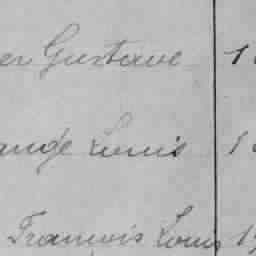 er Gustave 1
angé Louis 1
François Louis 19